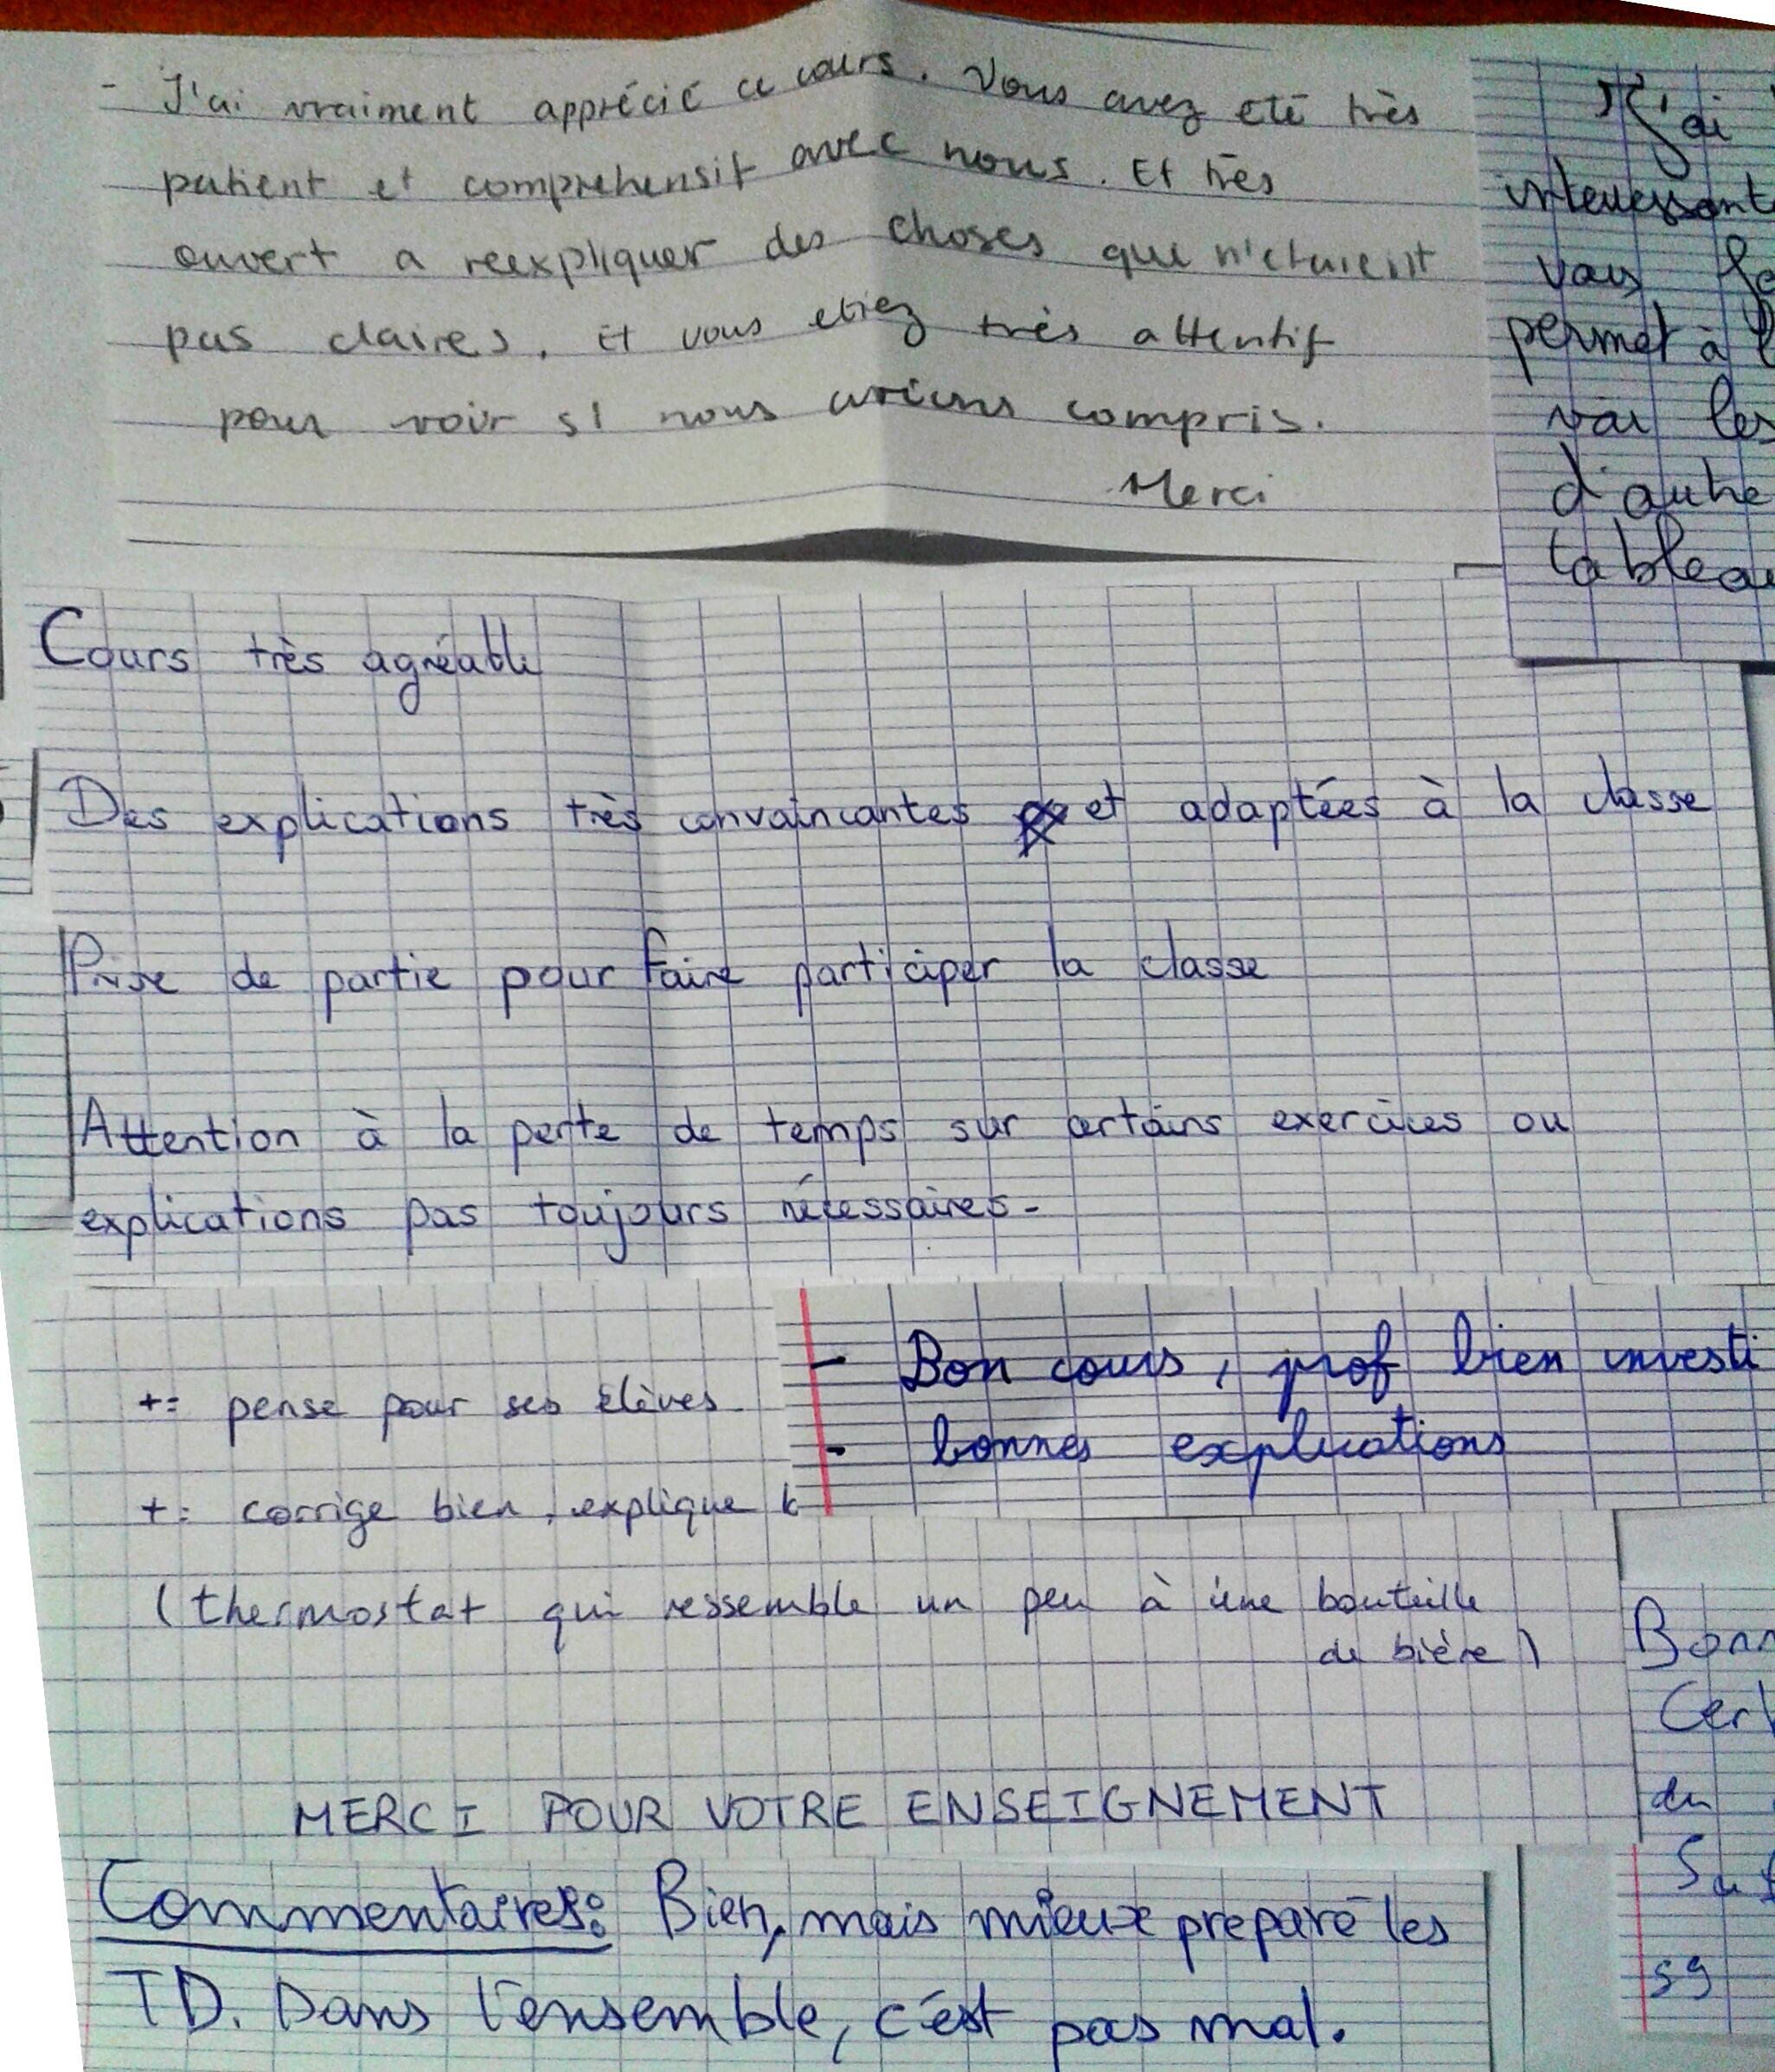 - J'ai vraiment apprécié ce cours. Vous avez été très
patient et comprehensif avec nous. Et très
ouvert a reexpliquer des choses que n'etaient
pas claires. Et vous etiez très attentif
pour voir si nous avions compris.
Merci
J'ai
interessant
vous
permet à
les
d'autre
tableau
Cours très agréable
Des explications très convaincantes et adaptées à la classe
Prise de partie pour faire participer la classe
Attention à la perte de temps sur certains exercices ou
explications pas toujours nécessaires-
+: pense pour ses élèves
+: corrige bien, explique
(thermostat qui ressemble un peu à une bouteille
de bière)
MERCI POUR VOTRE ENSEIGNEMENT
- Bon cours, prof bien investi
- bonnes explications
Bonn
Cer
du
Commentaires: Bien, mais mieux preparé les
TD. Dans l'ensemble, c'est pas mal.